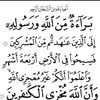 أعوذ بالله من الشيطان الرجيم
بَرَاءَةٌ مِّنَ اللَّهِ وَرَسُولِهِ
إِلَى الَّذِينَ عَاهَدتُّم مِّنَ الْمُشْرِكِينَ
فَسِيحُوا فِي الْأَرْضِ أَرْبَعَةَ أَشْهُرٍ
وَاعْلَمُوا أَنَّكُمْ غَيْرُ مُعْجِزِي اللَّهِ
وَأَنَّ اللَّهَ مُخْزِي الْكَافِرِينَ